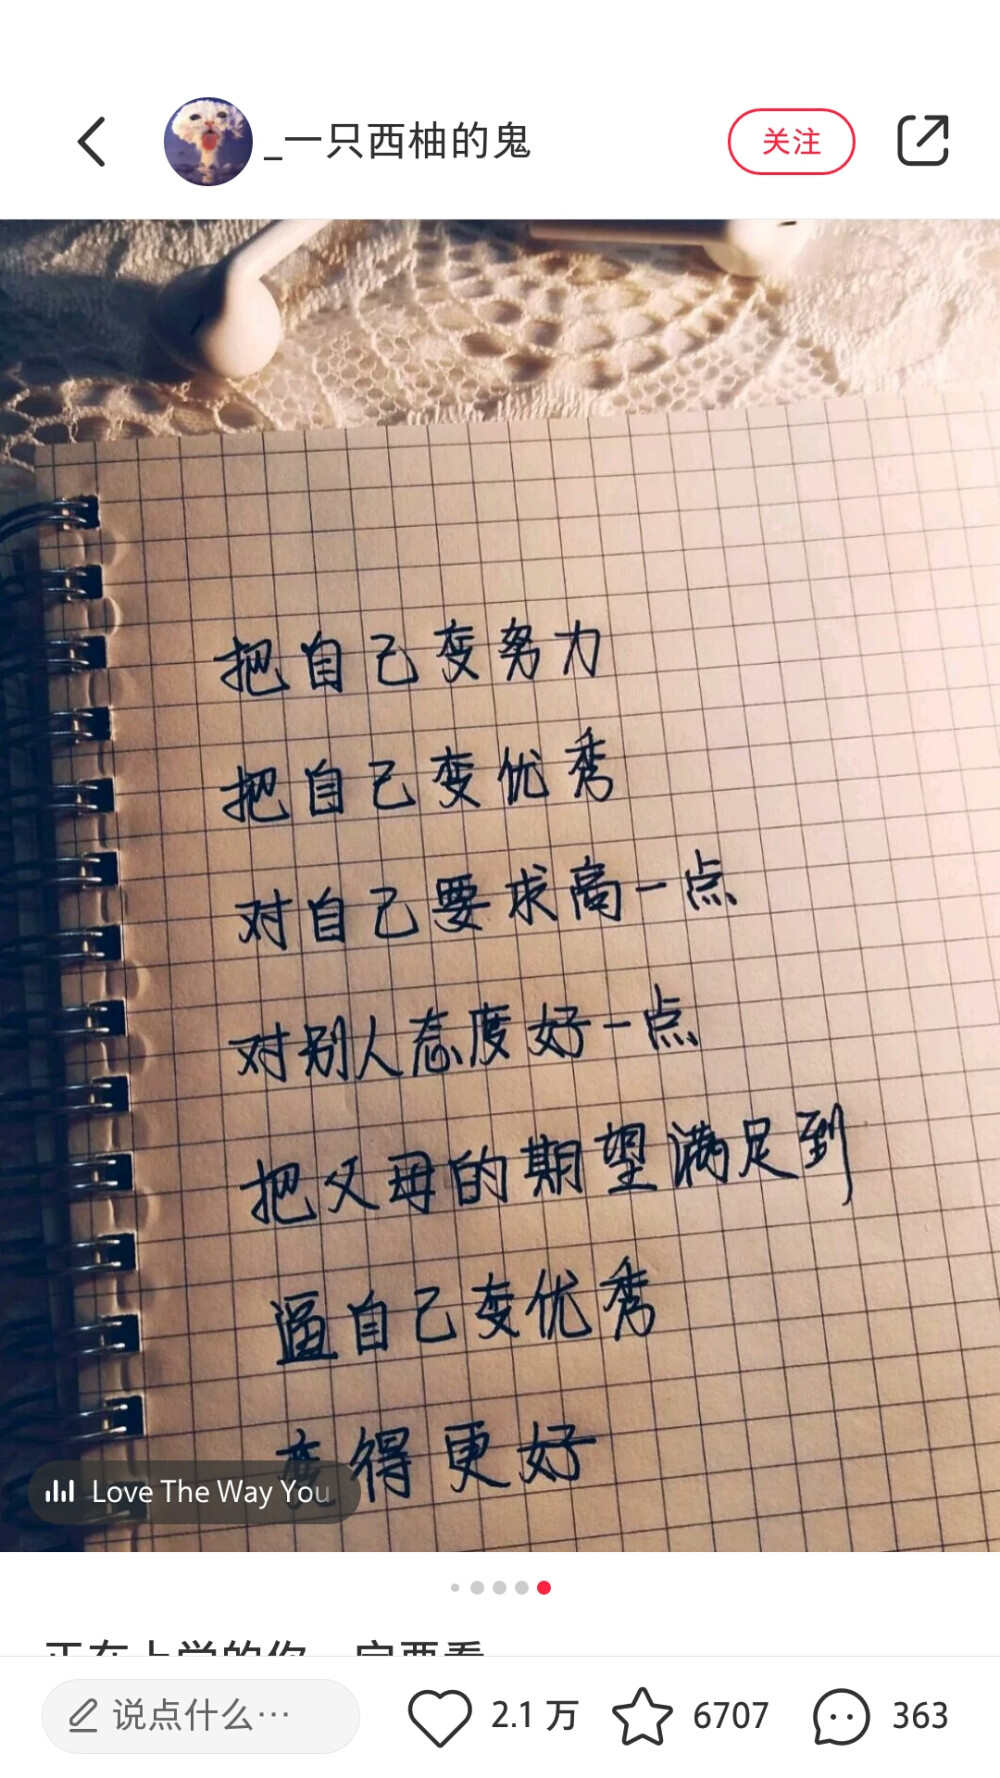 _一只西柚的鬼
关注
把自己变努力
把自己变优秀
对自己要求高一点
对别人态度好一点
把父母的期望满足到
逼自己变优秀
变得更好
Love The Way You
正在上学的你 一定要看
说点什么…
2.1 万
6707
363